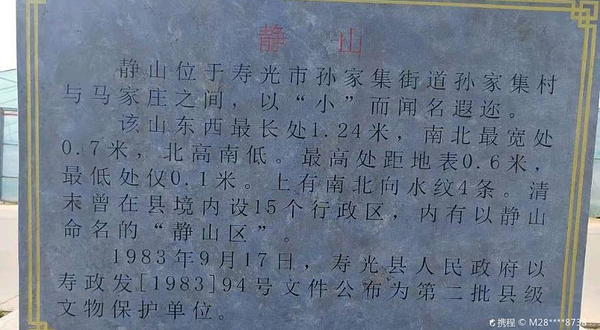 静山
静山位于寿光市孙家集街道孙家集村
与马家庄之间，以“小”而闻名遐迩。
该山东西最长处1.24米，南北最宽处
0.7米，北高南低。最高处距地表0.6米，
最低处仅0.1米。上有南北向水纹4条。清
末曾在县境内设15个行政区，内有以静山
命名的“静山区”。
1983年9月17日，寿光县人民政府以
寿政发[1983]94号文件公布为第二批县级
文物保护单位。
携程 © M28****8738